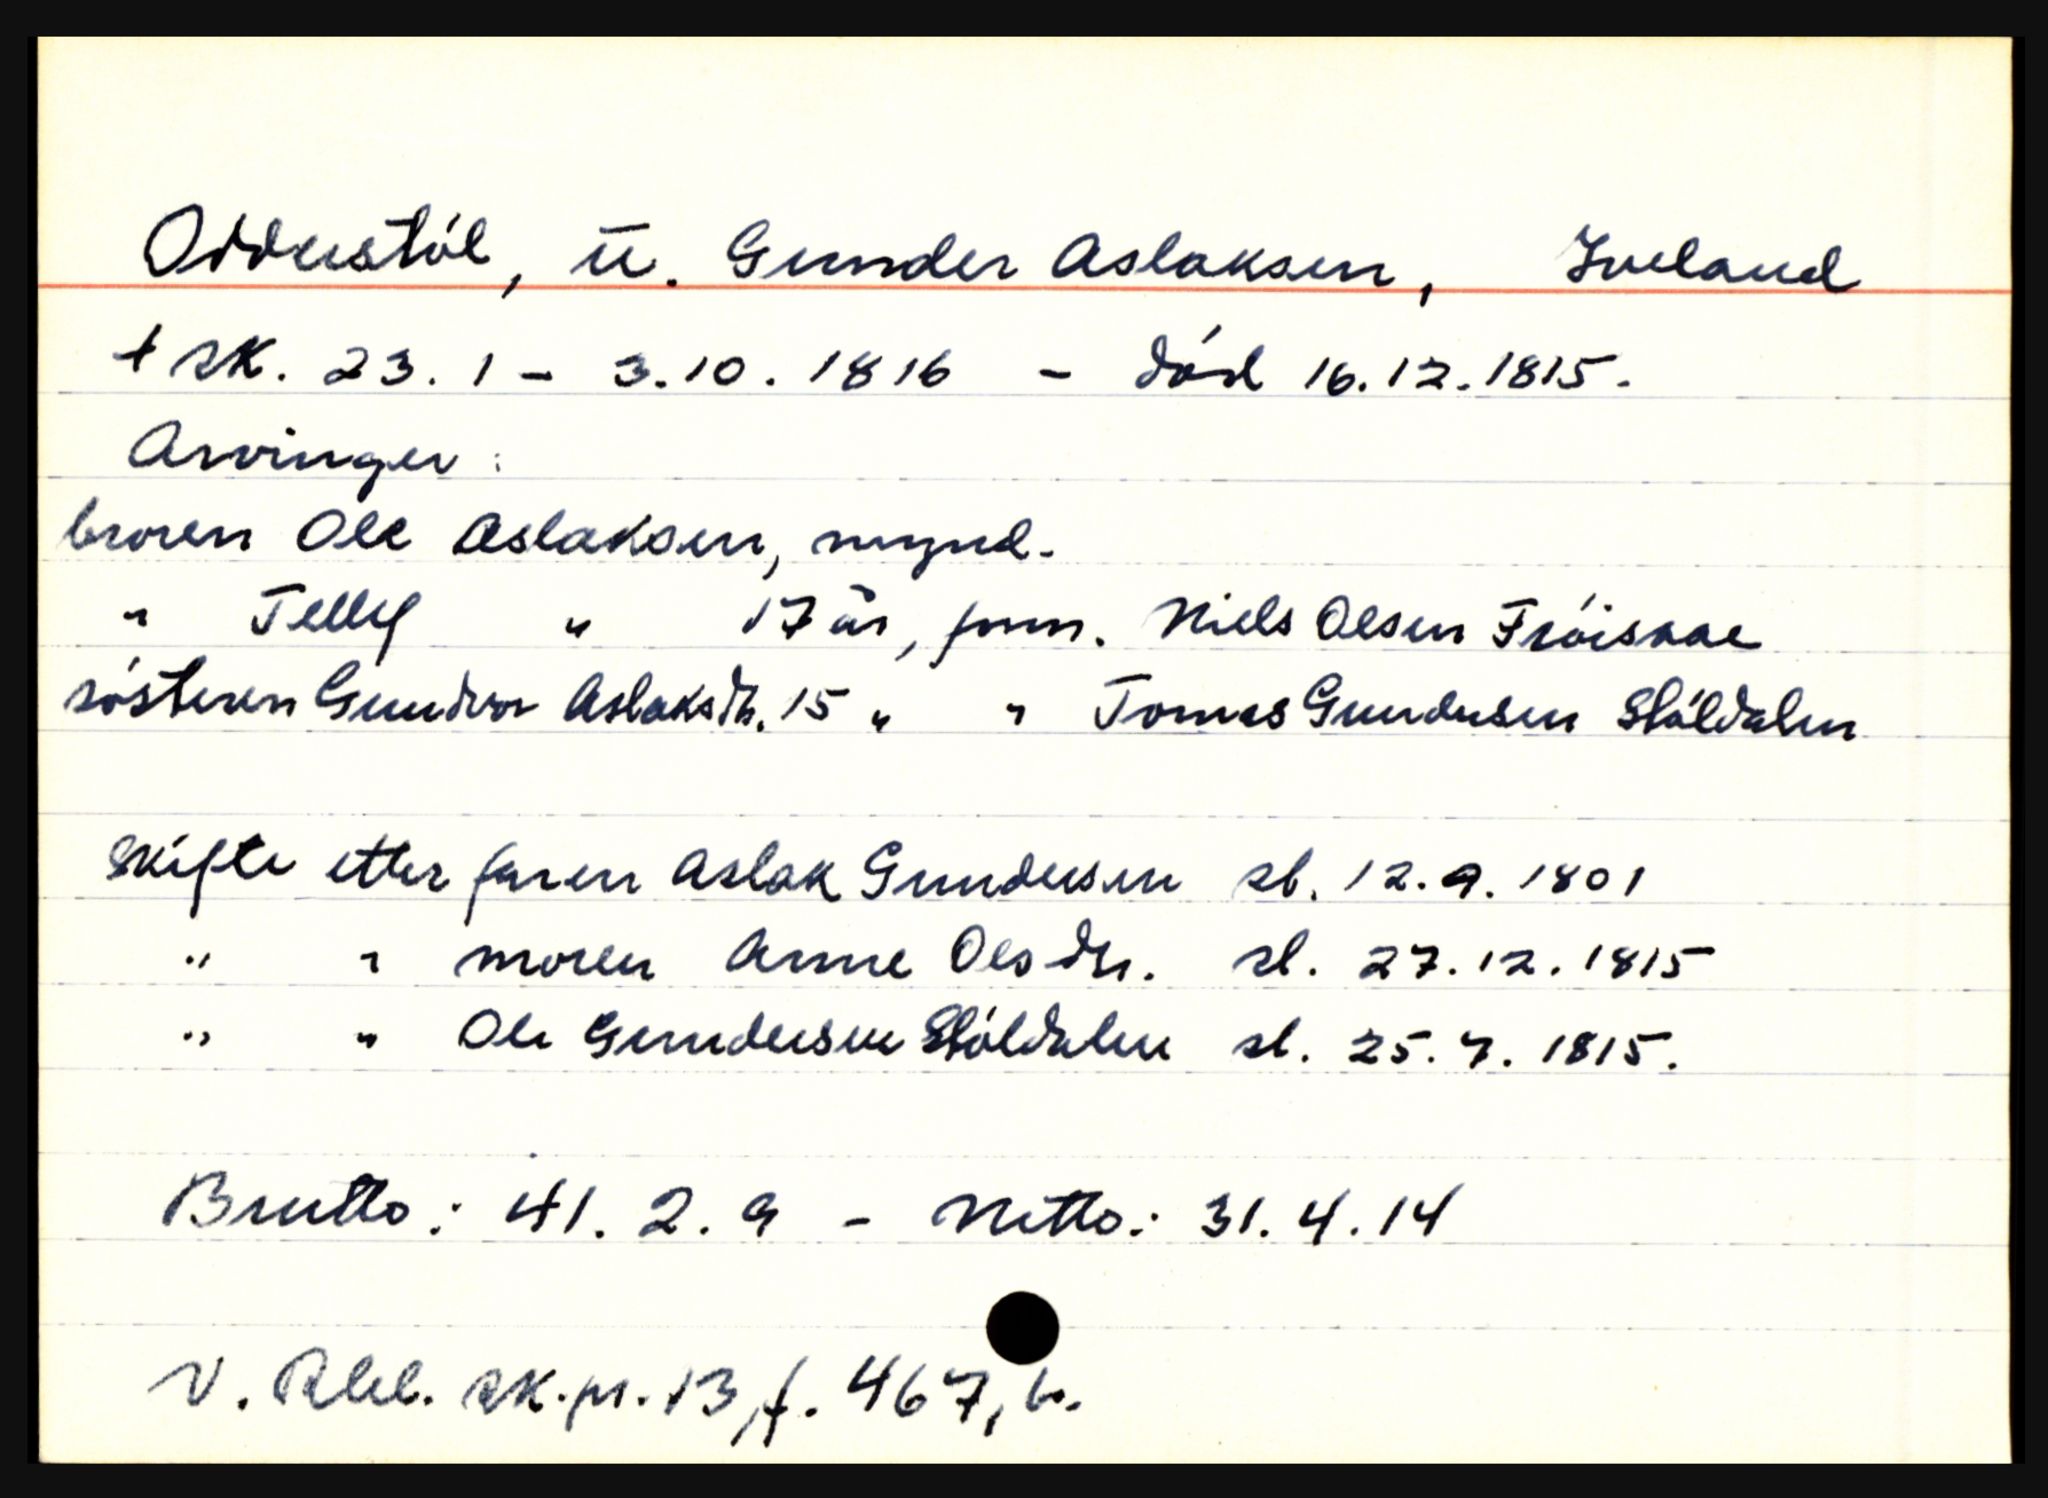 Oddestöl, u. Gunder Aslaksen, Iveland
+ sk. 23.1 - 3.10.1816 - död 16.12.1815.
Arvinger:
broren Ole Aslaksen, mynd.
" Tellef " 17 år, form. Niels Olsen Fröisaae
sösteren Gundvor Aslaksdtr. 15 " " Tomes Gundersen Stöldalen
skifte etter faren Aslak Gundersen sl. 12.9.1801
" " moren Anne Olsdtr. sl. 27.12.1815
" " Ole Gundersen Stöldalen sl. 25.7.1815.
Brutto: 41.2.9 - Netto: 31.4.14
V. Rbl. sk.pr. 13, f. 467, b.